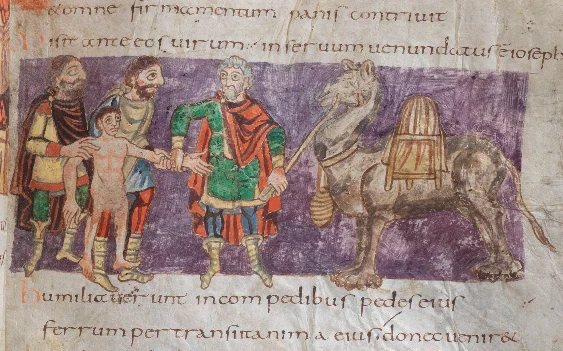 &omne firmamentum panis contriuit
Misit ante eos uirum inseruum uenundatus ē ioseph
Humiliauerunt incompedibus pedes eius
ferrum per transiit anima eius. donec uenir&